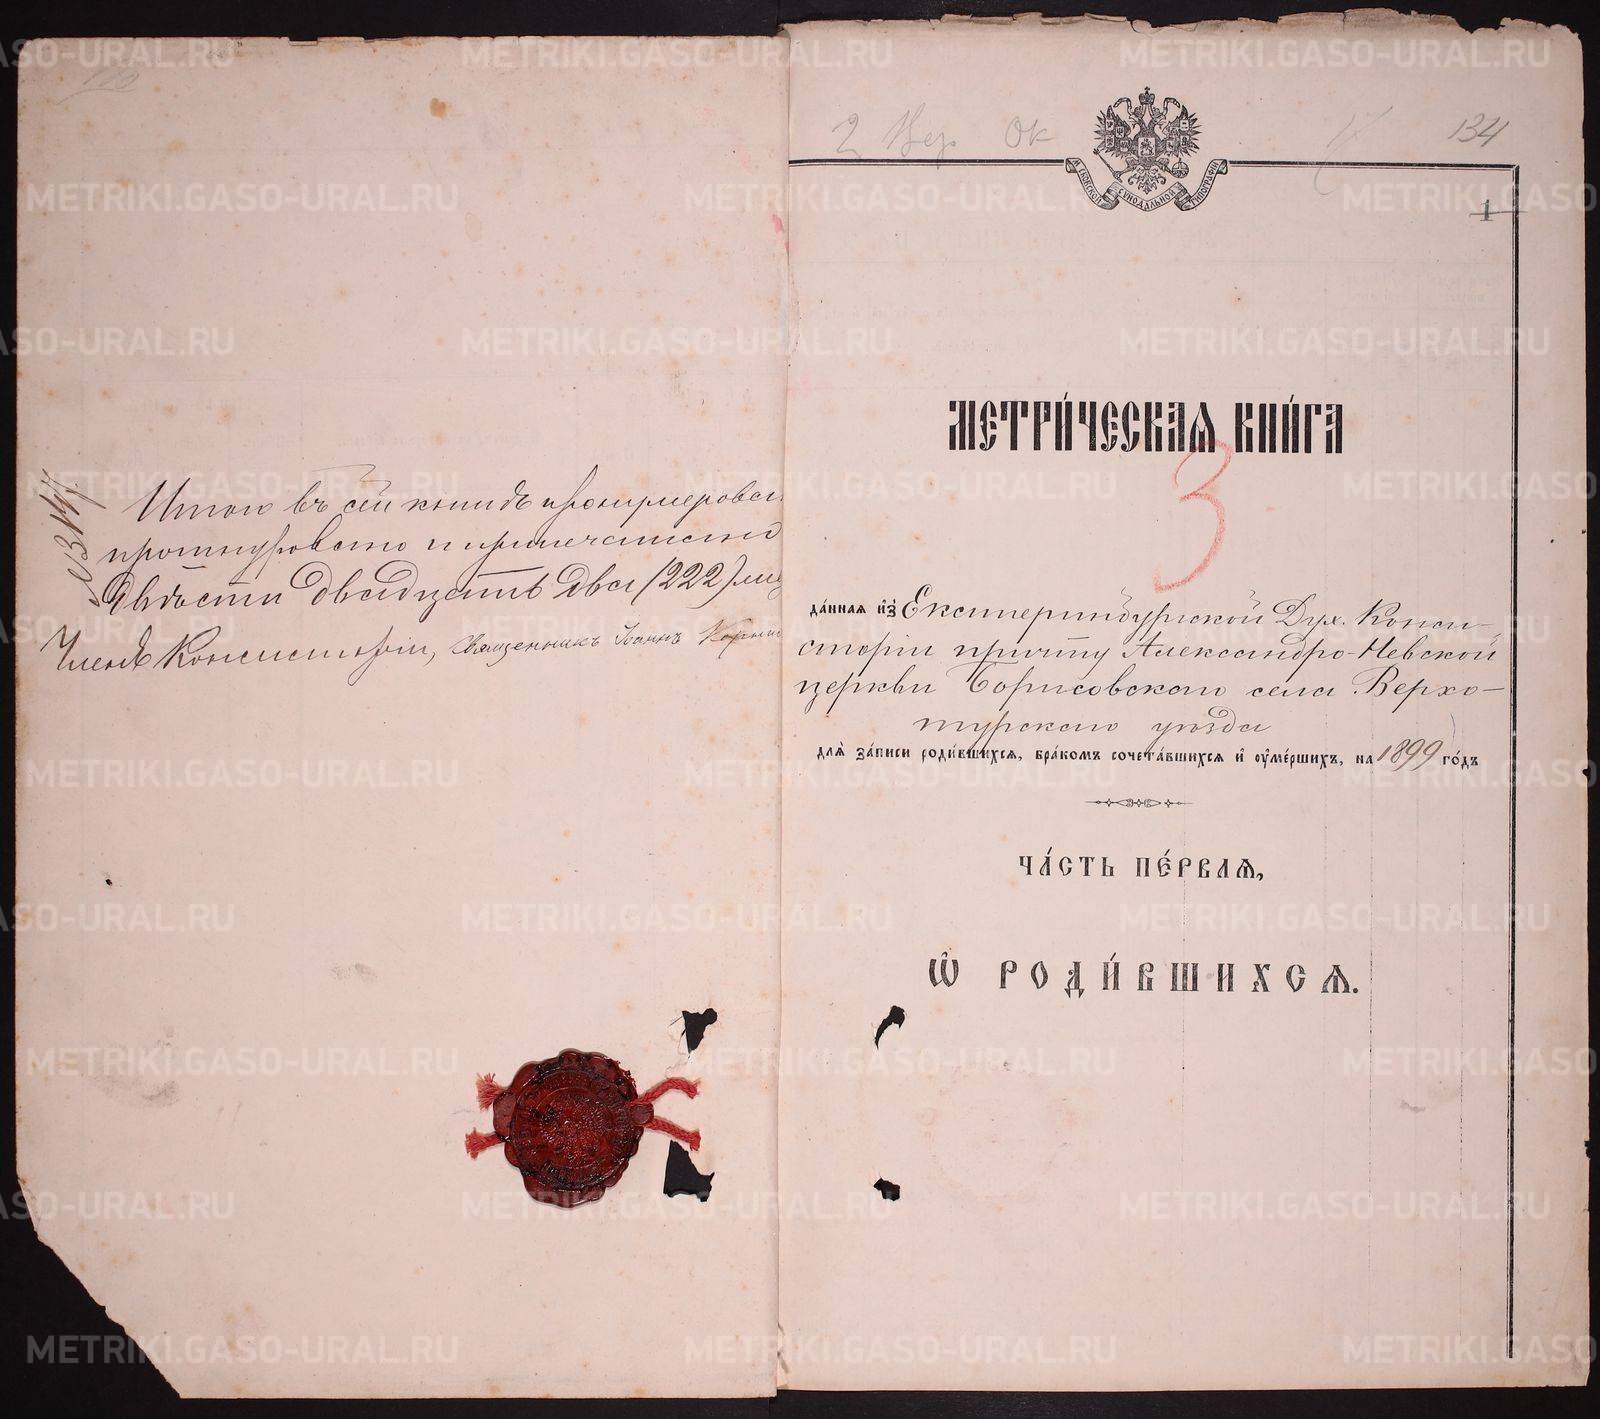 Итого въ сей книгѣ пронумерован
прошнуровано и припечатано
двѣсти двадцать два (222) лис
Членъ Консисторіи, священникъ Іоаннъ
2 Вер Ок
134
1
МОСКОВСКОЙ СѴНОДАЛЬНОЙ ТИПОГРАФІИ
МЕТРИ́ЧЕСКАѦ КНИ́ГА
3
да́нная и҆з̾ Екатеринбургской Дух. Конси-
сторіи причту Александро-Невской
церкви Борисовскаго села Верхо-
турскаго уѣзда
длѧ̀ за́писи роди́вшихсѧ, бра́комъ сочета́вшихсѧ и҆ оу҆ме́ршихъ, на 1899 го́дъ
ЧА́СТЬ ПЕ́РВАѦ,
Ѡ҆ РОДИ́ВШИХСѦ.
METRIKI.GASO-URAL.RU